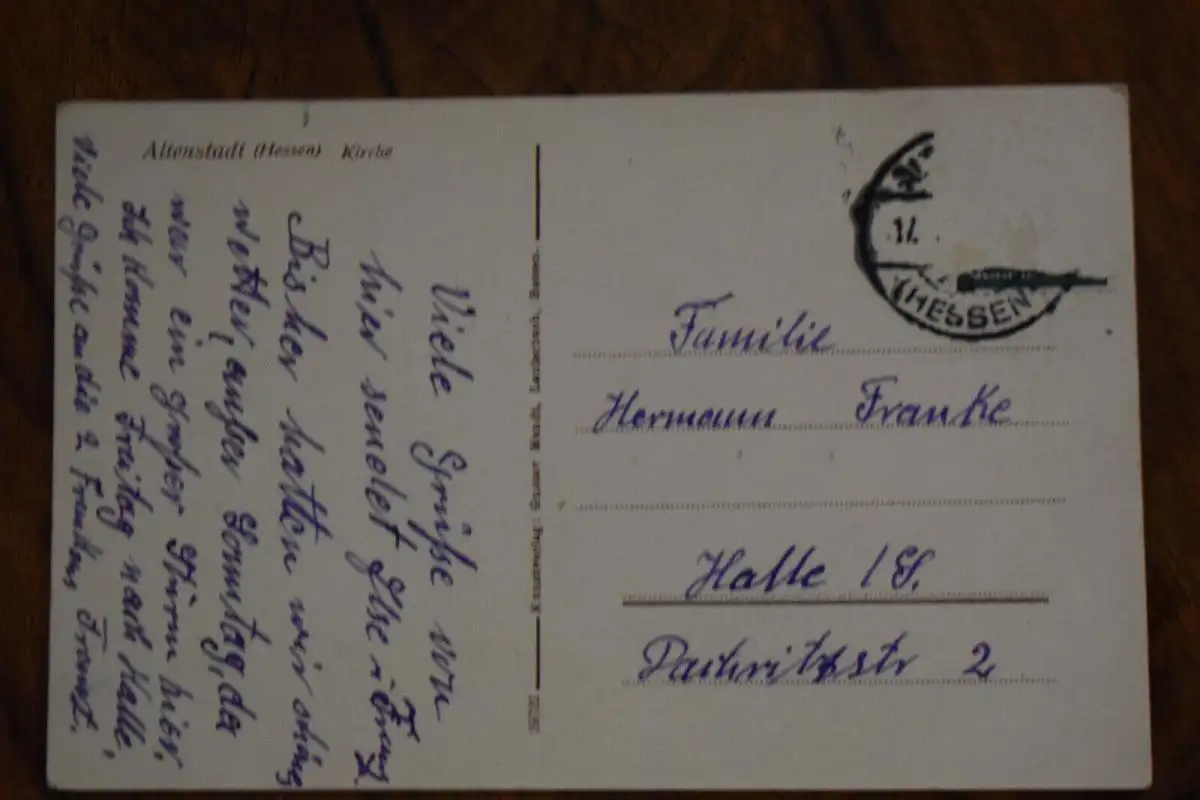 Altenstadt (Hessen) Kirche
Viele Grüße von
hier sendet Ilse u. Franz
Bisher hatten wir schönes
wetter, außer Sonntag, da
war ein großer Sturm hier.
Ich komme Freitag nach Halle.
Viele Grüße an die 2
17.
(HESSEN)
Familie
Hermann Franke
Halle / S.
Pachritzstr 2